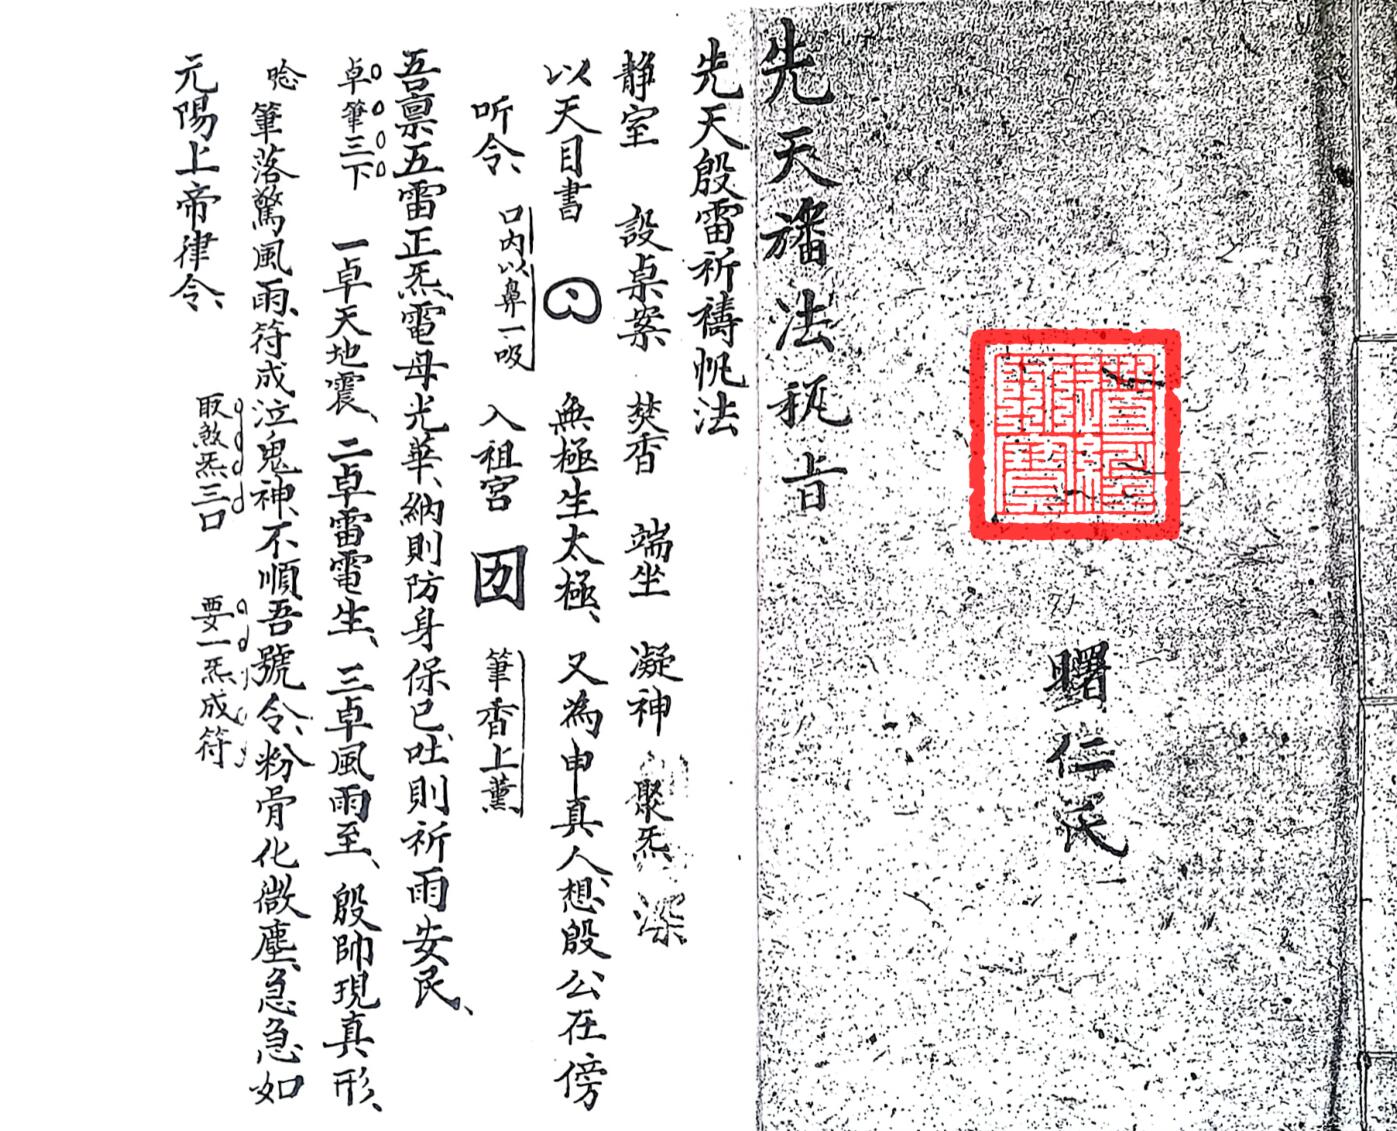 先天旛法秘旨
曙仁氏
先天殷雷祈禱帆法
静室 設桌案 焚香 端坐 凝神 聚炁 深
以天目書 無極生太極、又為申真人想、殷公在傍
听令、口内以鼻一吸 入祖宮 筆香上薰
吾禀五雷正炁、電母光華、納則防身保已、吐則祈雨安民、
卓筆三下 一卓天地震、二卓雷電生、三卓風雨至、殷帥現真形、
唸 筆落驚風雨、符成泣鬼神、不順吾號令、粉骨化微塵、急急如
元陽上帝律令、 取煞炁三口 要一炁成符